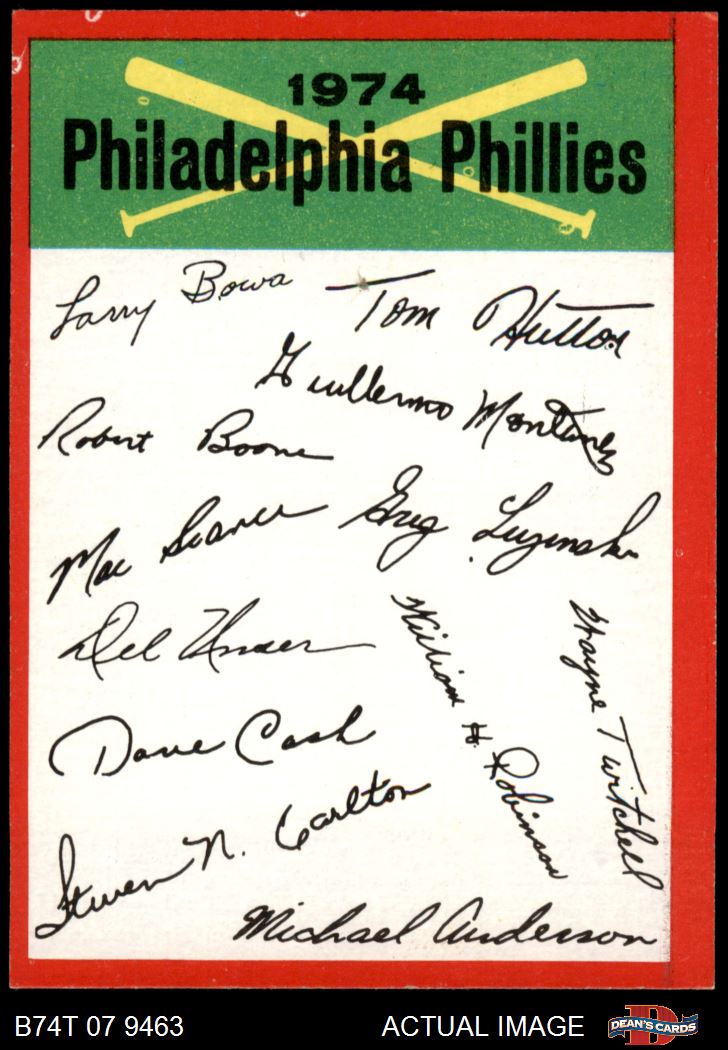 1974
Philadelphia Phillies
Larry Bowa
Tom Hutton
Guillermo Montanez
Robert Boone
Mac Scarce
Greg Luzinski
Del Unser
William H. Robinson
Wayne Twitchell
Dave Cash
Steven N. Carlton
Michael Anderson
B74T 07 9463
ACTUAL IMAGE
DEAN'S CARDS